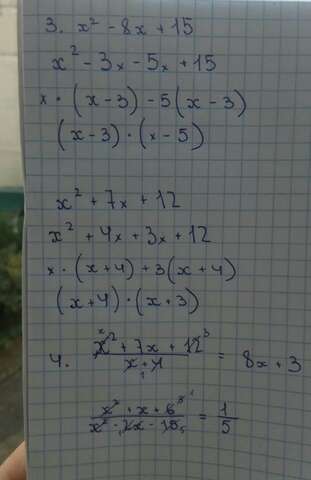 3. x² - 8x + 15
x² - 3x - 5x + 15
x · (x - 3) - 5(x - 3)
(x - 3) · (x - 5)
x² + 7x + 12
x² + 4x + 3x + 12
x · (x + 4) + 3(x + 4)
(x + 4) · (x + 3)
4. (x² + 7x + 12)/(x + 4) = 8x + 3
(x² + x + 6)/(x² - 2x - 15) = 1/5